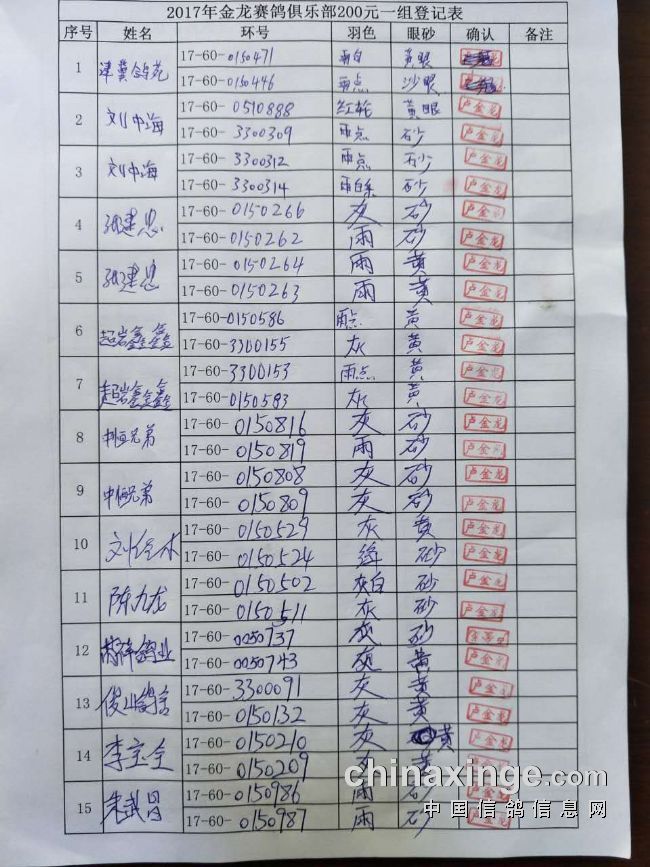 2017年金龙赛鸽俱乐部200元一组登记表
序号 姓名 环号 羽色 眼砂 确认 备注
1 津冀鸽苑 17-60-0150471 雨白 黄眼
17-60-0150446 雨点 沙眼
2 刘中海 17-60-0510888 红轮 黄眼 卢金龙
17-60-3300309 雨点 砂 卢金龙
3 刘中海 17-60-3300312 雨点 砂 卢金龙
17-60-3300314 雨白条 砂 卢金龙
4 张建忠 17-60-0150266 灰 砂 卢金龙
17-60-0150262 雨 砂 卢金龙
5 张建忠 17-60-0150264 雨 黄 卢金龙
17-60-0150263 雨 黄 卢金龙
6 赵岩鑫鑫 17-60-0150586 雨点 黄 卢金龙
17-60-3300155 灰 黄 卢金龙
7 赵岩鑫鑫 17-60-3300153 雨点 黄 卢金龙
17-60-0150583 灰 黄 卢金龙
8 兄弟 17-60-0150816 灰 砂 卢金龙
17-60-0150819 雨 砂 卢金龙
9 兄弟 17-60-0150808 灰 砂 卢金龙
17-60-0150809 灰 砂 卢金龙
10 17-60-0150529 灰 黄 卢金龙
17-60-0150524 绛 砂 卢金龙
11 陈九龙 17-60-0150502 灰白 砂 卢金龙
17-60-0150511 灰 砂 卢金龙
12 鸽业 17-60-0050737 灰 砂
17-60-0050743 灰 黄 卢金龙
13 俊山鸽舍 17-60-3300091 灰 黄 卢金龙
17-60-0150132 灰 黄 卢金龙
14 李宝全 17-60-0150210 灰 黄 卢金龙
17-60-0150209 灰 黄 卢金龙
15 朱武昌 17-60-0150986 雨 砂 卢金龙
17-60-0150987 雨 砂 卢金龙
chinaxinge.com
中国信鸽信息网